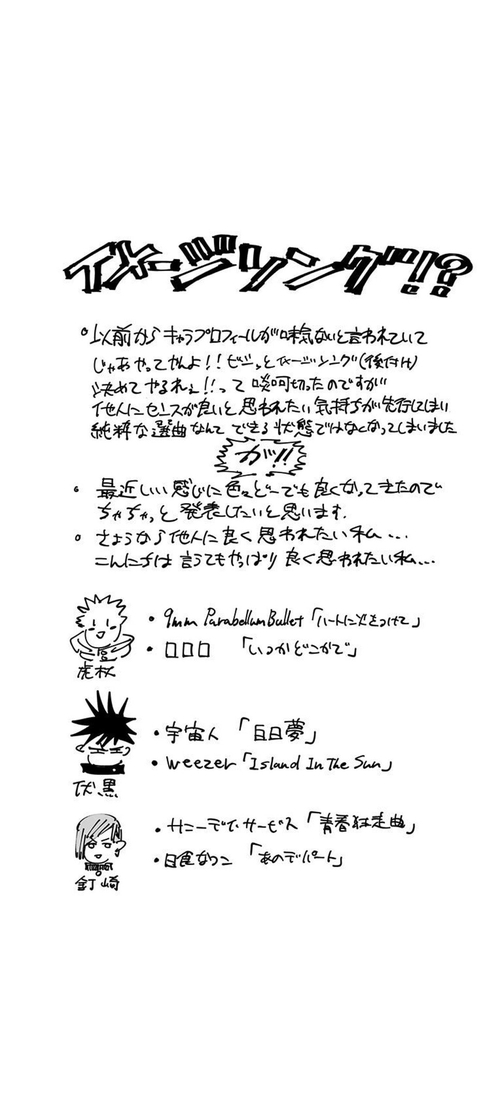 イメージソング!?
以前からキャラプロフィールが味気ないと言われていて
じゃあやってやんよ!!ビシッとイメージソング(後付け)
決めてやるれぇ!!って啖呵切ったのですが
他人にセンスが良いと思われたい気持ちが先行してしまい
純粋な選曲なんてできる状態ではなくなってしまいました
が!!
・最近いい感じに色々どーでも良くなってきたので
ちゃちゃっと発表したいと思います.
。さようなら他人に良く思われたい私...
こんにちは言うてもやっぱり良く思われたい私...
・9mm Parabellum Bullet「ハートに火をつけて」
・口口口 「いつかどこかで」
虎杖
・宇宙人 「白日夢」
・weezer「Island In The Sun」
伏黒
・サニーデイ・サービス「青春狂走曲」
・日食なつこ 「あのデパート」
釘崎